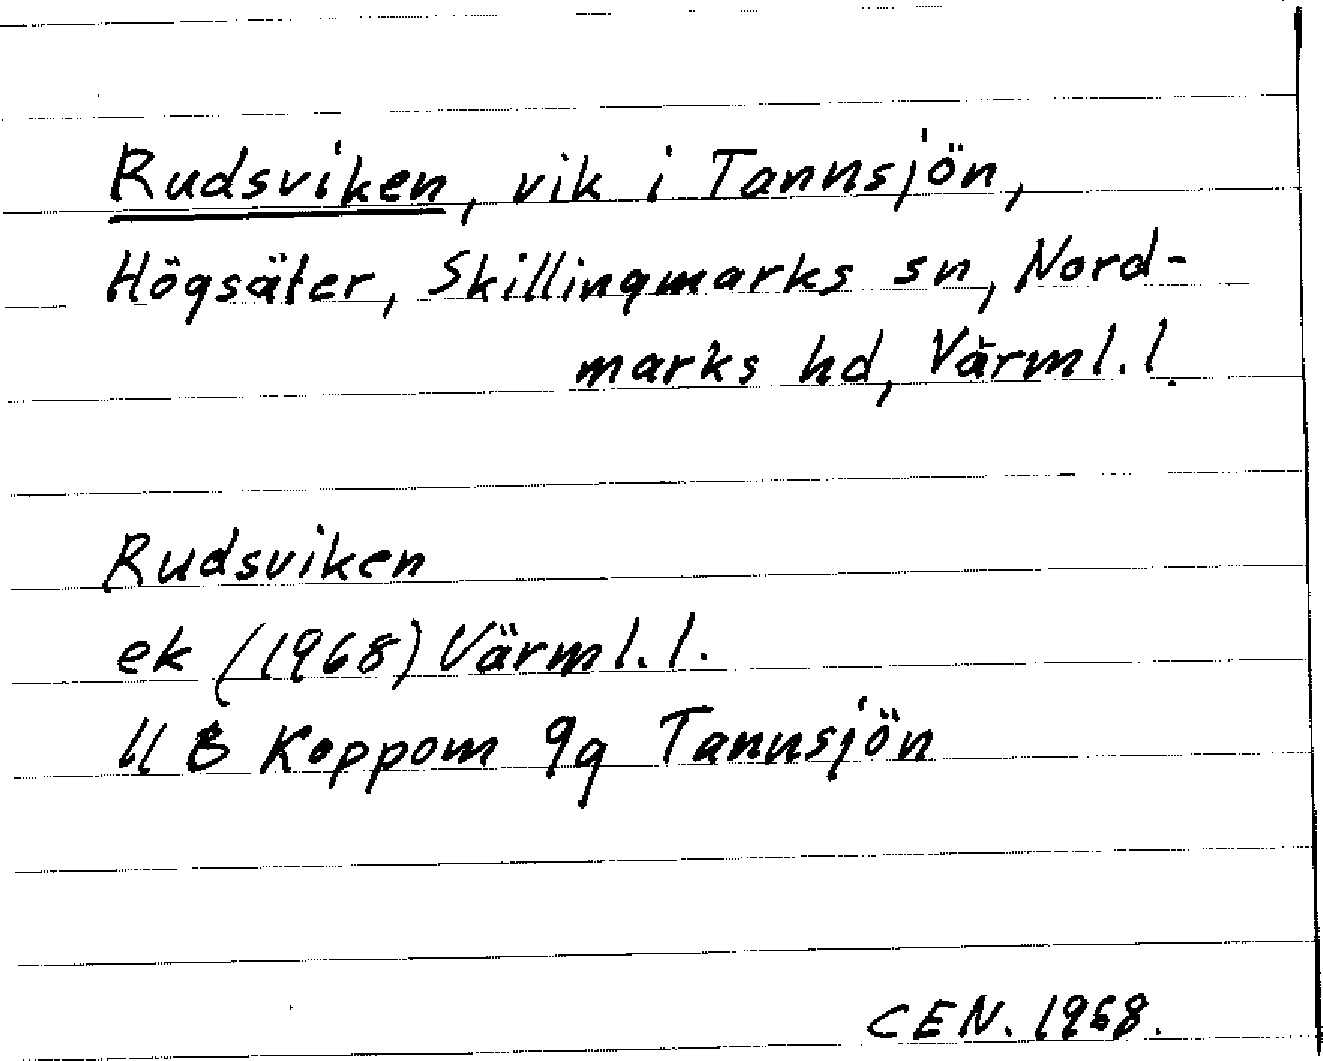 Rudsviken, vik i Tannsjön,
Högsäter, Skillingmarks sn, Nord-
marks hd, Värml. l.
Rudsviken
ek (1968) Värml. l.
11 B Koppom 9g Tannsjön
CEN. 1968.